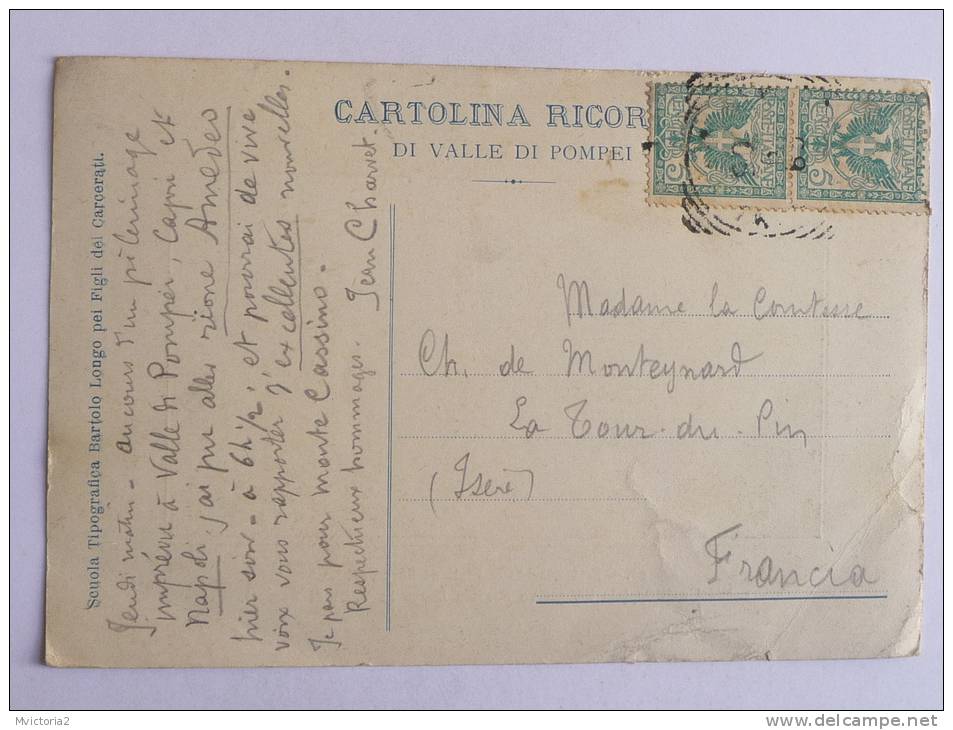 CARTOLINA RICOR
DI VALLE DI POMPEI
Scuola Tipografica Bartolo Longo pei Figli dei Carcerati.
Jeudi matin - au cours d'un pélerinage
imprévu à Valle di Pompei, Capri et
Napoli, j'ai pu aller rione Amedeo
hier soir - à 6h 1/2, et pourrai de vive
voix vous rapporter d'excellentes nouvelles.
Je pars pour monte Cassino.
Respectueux hommages. Jean Charvet.
Madame la Comtesse
Ch. de Monteynard
La Tour-du-Pin
(Isère)
Francia
POSTE ITALIANE
5
POSTE ITALIANE
5
Mvictoria2
delcampe.net